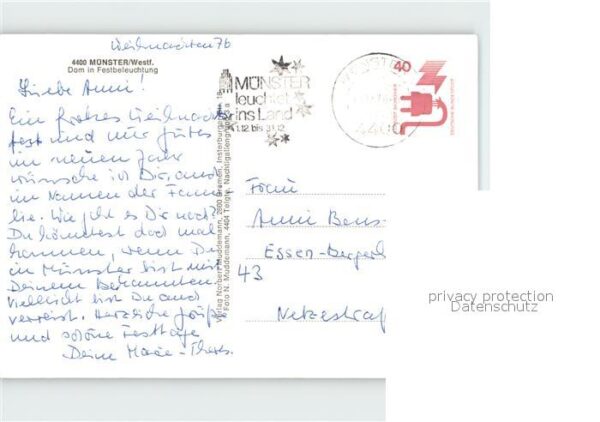 Weihnachten 76
4400 MÜNSTER/Westf.
Dom in Festbeleuchtung
Liebe Anni!
Ein frohes Weihnachts
fest und nur Gutes
im neuen Jahr
wünsche ich Dir, auch
im Namen der Fami
lie. Wie geht es Dir noch?
Du könntest doch mal
kommen, wenn Du
in Münster bist mit
Deinem Bekannten.
Vielleicht bist Du auch
verreist. Herzliche Grüße
und schöne Festtage
Deine Marie-Theres.
Verlag Norbert Muddemann, 2800 Bremen, Insterburger
© Foto N. Muddemann, 4404 Telgte, Nachtigallengrund
MÜNSTER
leuchtet
ins Land
1.12 bis 31.12
4400
40
DEUTSCHE BUNDESPOST
Frau
Anni Bens
Essen-Bergerh
43
Netzestraß
privacy protection
Datenschutz